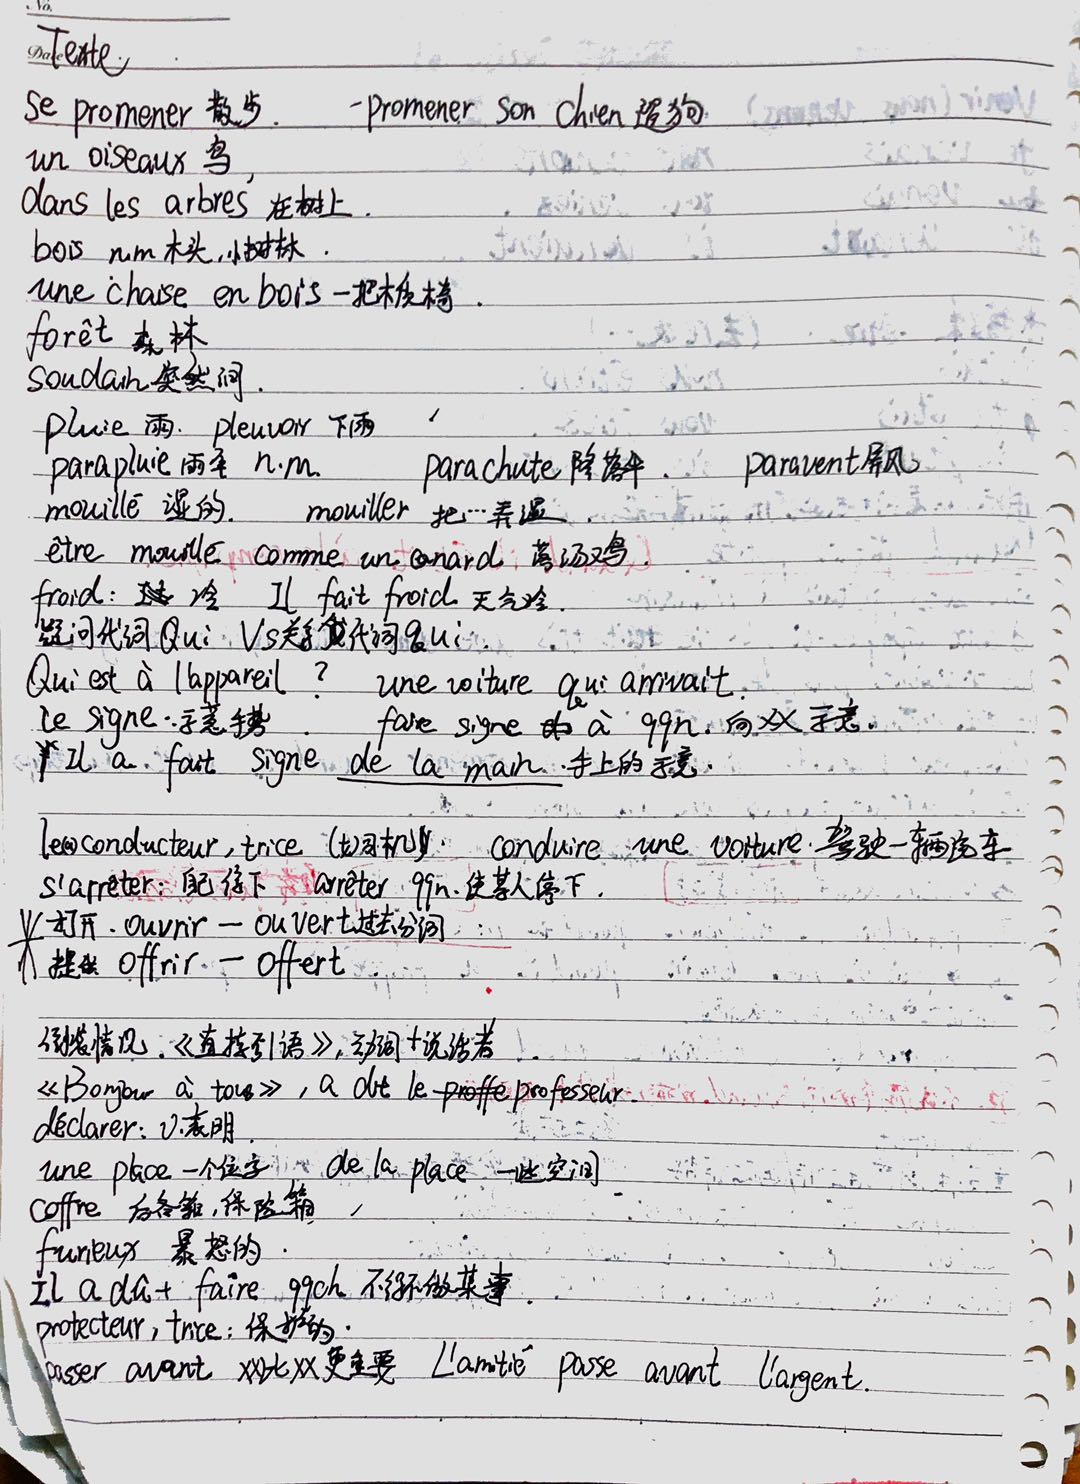 No.
Date
Texte
se promener 散步. -promener son chien 遛狗
un oiseaux 鸟,
dans les arbres 在树上.
bois n.m 木头,小树林.
une chaise en bois 一把木质椅.
forêt 森林
soudain 突然间.
pluie 雨. pleuvoir 下雨
parapluie 雨伞 n.m. parachute 降落伞. paravent 屏风
mouillé 湿的. mouiller 把…弄湿.
être mouillé comme un canard 落汤鸡.
froid: 冷 Il fait froid 天气冷.
疑问代词 Qui Vs 关系代词 qui.
Qui est à l'appareil ? une voiture qui arrivait.
le signe: 示意手势. faire signe à qqn. 向XX示意.
Il a fait signe de la main. 手上的示意.
le conducteur, trice (女)司机. conduire une voiture. 驾驶一辆汽车
s'arrêter: 停下 arrêter qqn. 使某人停下.
打开. ouvrir — ouvert 过去分词
提供 offrir — offert
倒装情况. 《直接引语》, 动词+说话者.
«Bonjour à tous», a dit le proffe professeur.
déclarer: v.表明.
une place 一个位子 de la place 一些空间
coffre 后备箱,保险箱,
furieux 暴怒的.
Il a dû + faire qqch 不得不做某事.
protecteur, trice: 保护的.
passer avant XX比XX更重要 L'amitié passe avant l'argent.